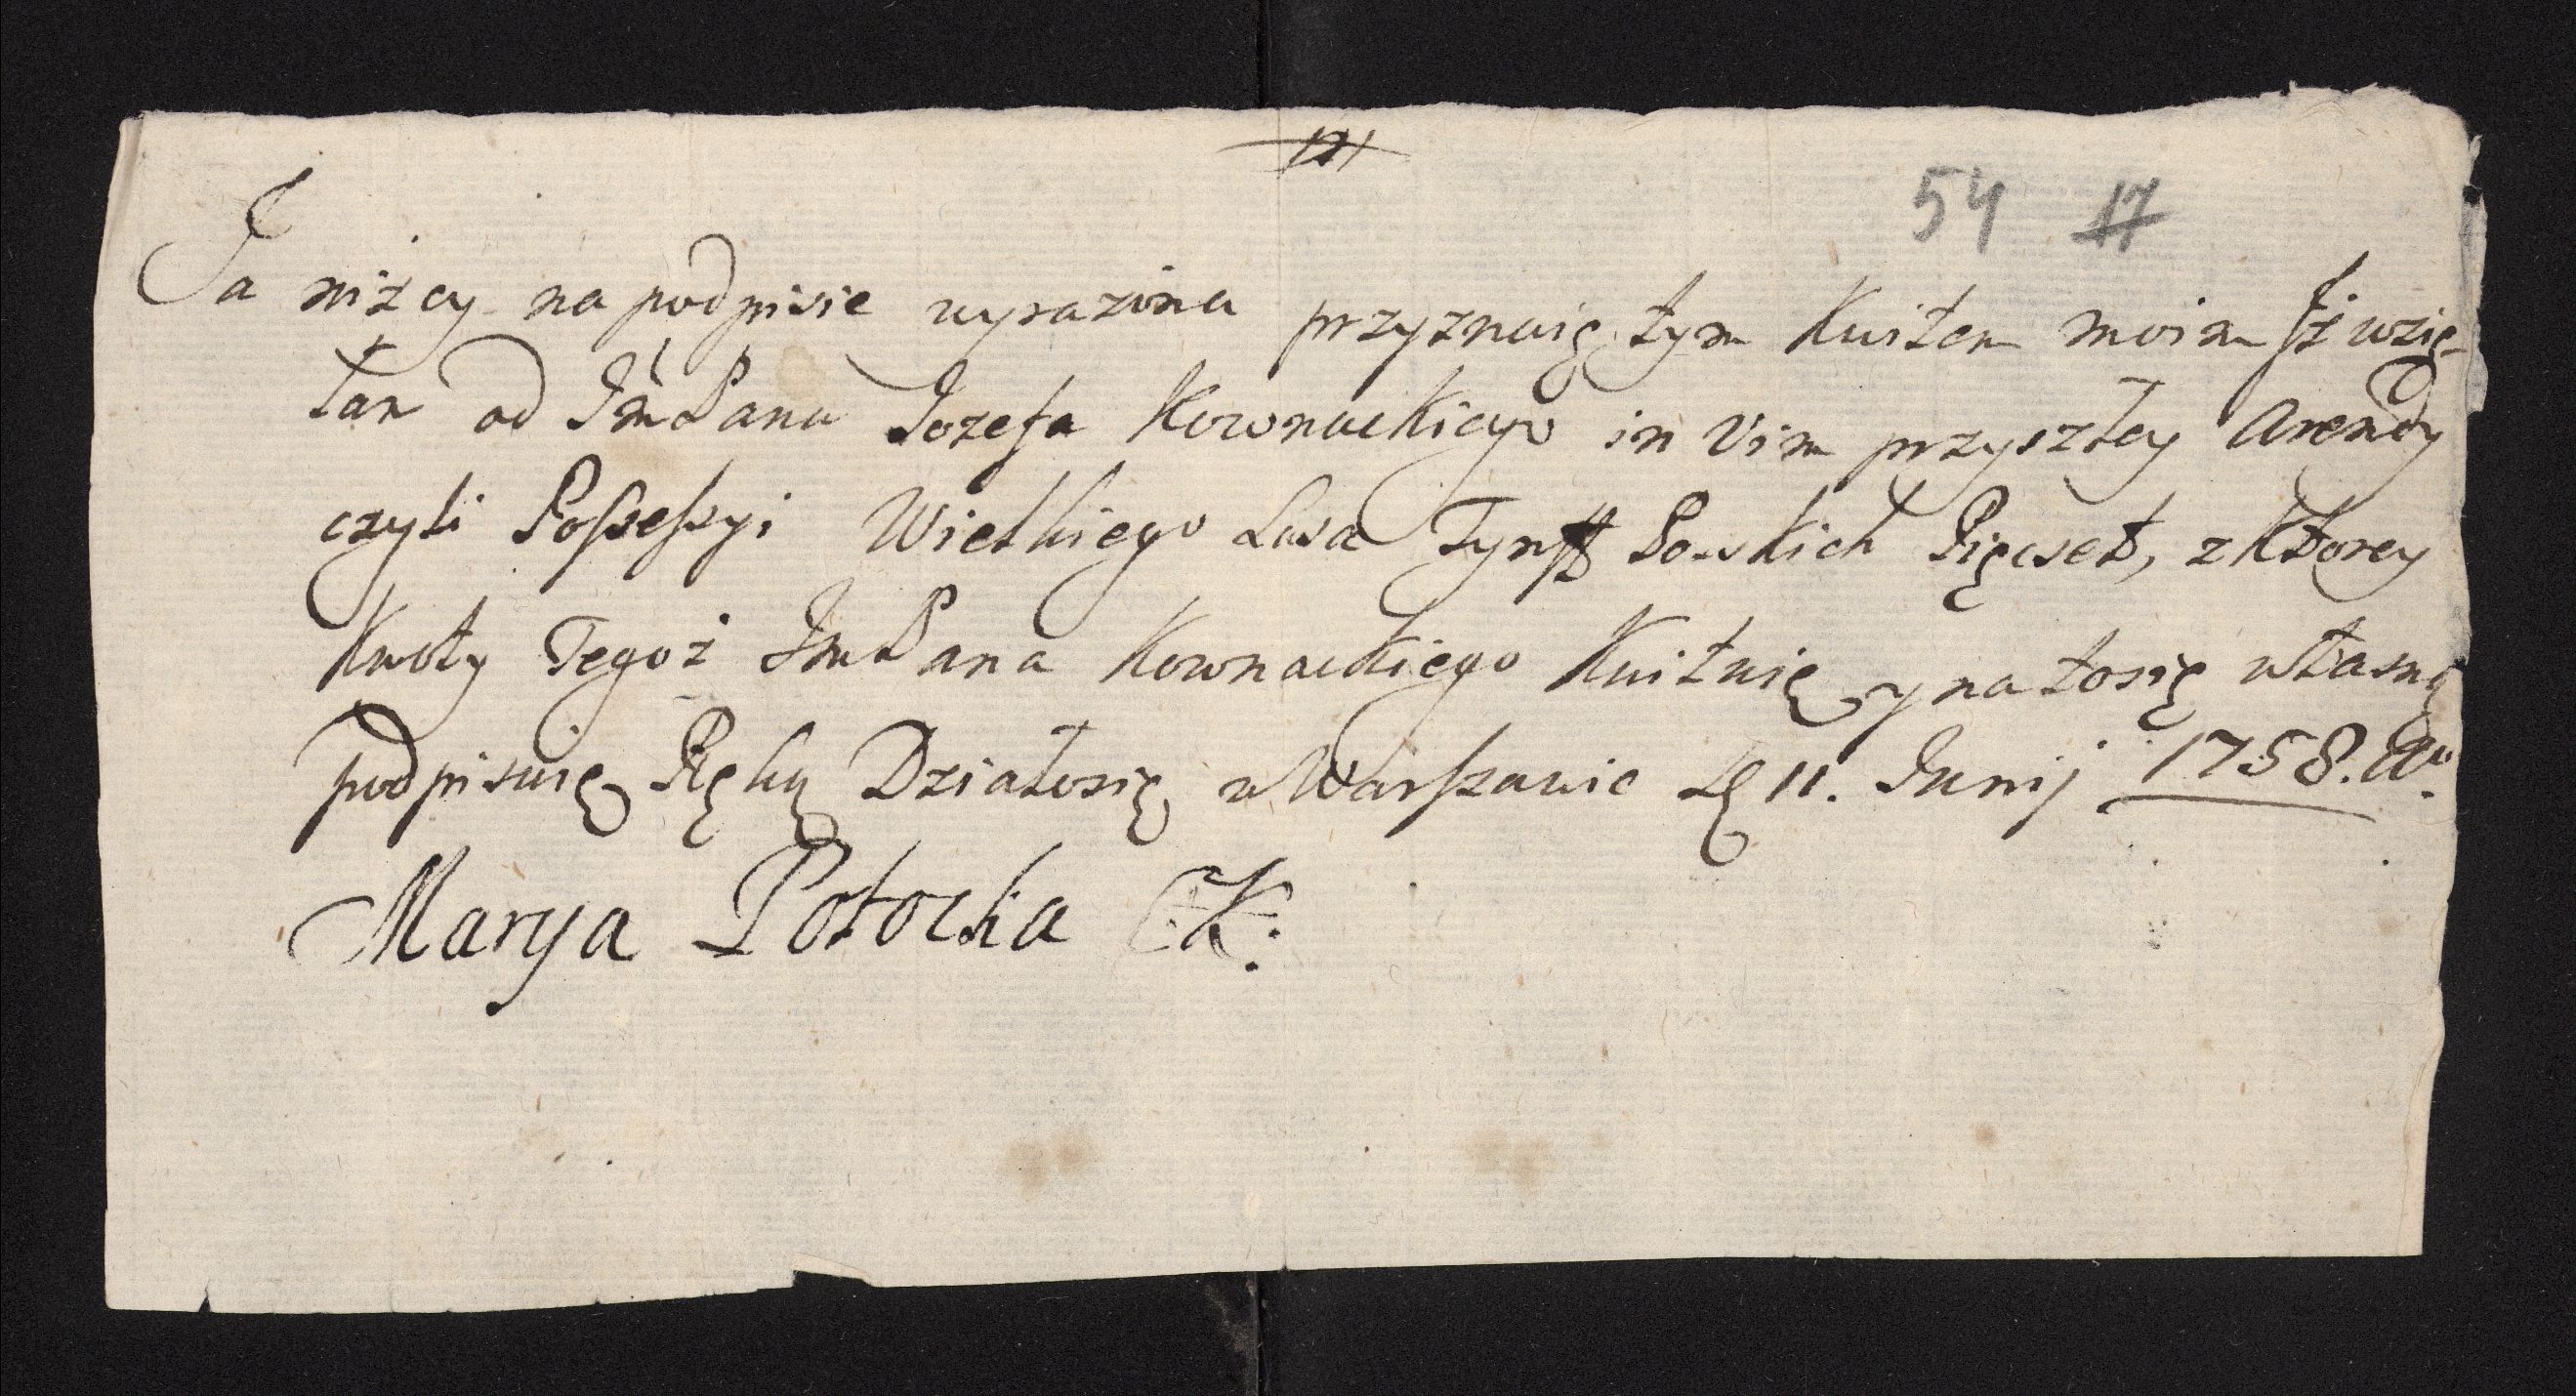 54 17
Ja niżey na podpisie wyrażona przyznaię tym Kwitem moim Jż wzię-
łam od JmPana Jozefa Kownackiego in Vim przyszłey Arendy
czyli Possessyi Wielkiego Lasa Tynff Polskich Pięcset, z Ktorey
Kwoty Tegoż JmPana Kownackiego Kwituię y na to się własną
podpisuię Ręką Działosię w Warszawie D 11. Junij 1758. Ao.
Marya Potocka